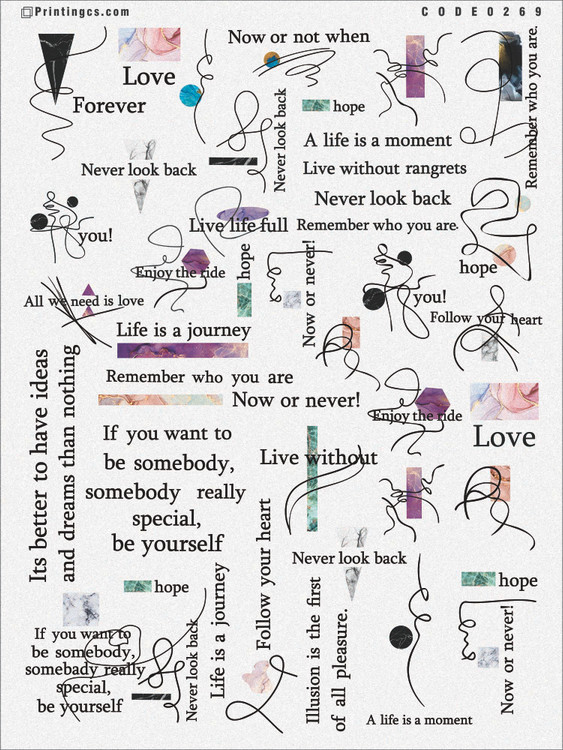 Printingcs.com
CODE0269
Now or not when
Love
Forever
hope
Never look back
Remember who you are.
A life is a moment
Live without rangrets
Never look back
Never look back
Live life full
Remember who you are.
you!
Enjoy the ride
hope
Now or never!
hope
All we need is love
you!
Follow your heart
Life is a journey
Remember who you are
Now or never!
Enjoy the ride
Love
Its better to have ideas
and dreams than nothing
If you want to
be somebody,
somebody really
special,
be yourself
Live without
Never look back
hope
hope
Follow your heart
Life is a journey
Illusion is the first
of all pleasure.
Never look back
If you want to
be somebody,
somebady really
special,
be yourself
Now or never!
A life is a moment